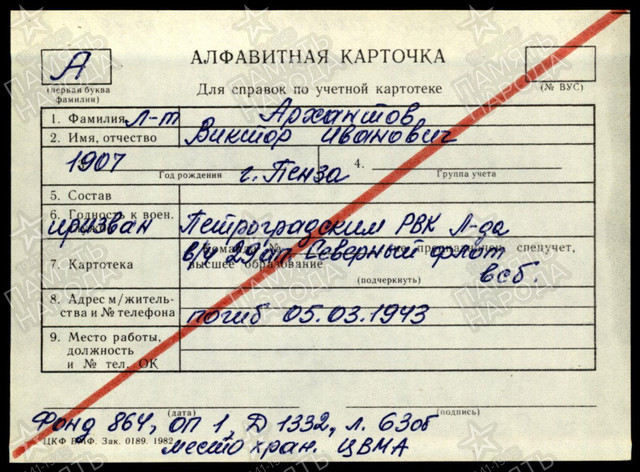 А
АЛФАВИТНАЯ КАРТОЧКА
(первая буква фамилии)
Для справок по учетной картотеке
(№ ВУС)
1. Фамилия Л-т Архантов
2. Имя, отчество Виктор Иванович
1907 г. Пенза 4.
Год рождения Группа учета
5. Состав
6. Годность к воен.
призван Петроградским РВК Л-да
в/ч 29ап Северный флот
7. Картотека высшее образование спецучет,
(подчеркнуть) всб.
8. Адрес м/житель-
ства и № телефона погиб 05.03.1943
9. Место работы,
должность
и № тел. ОК
(дата) (подпись)
Фонд 864, оп 1, Д 1332, л. 63об
ЦКФ ВМФ. Зак. 0189. 1982 место хран. ЦВМА
ПАМЯТЬ НАРОДА